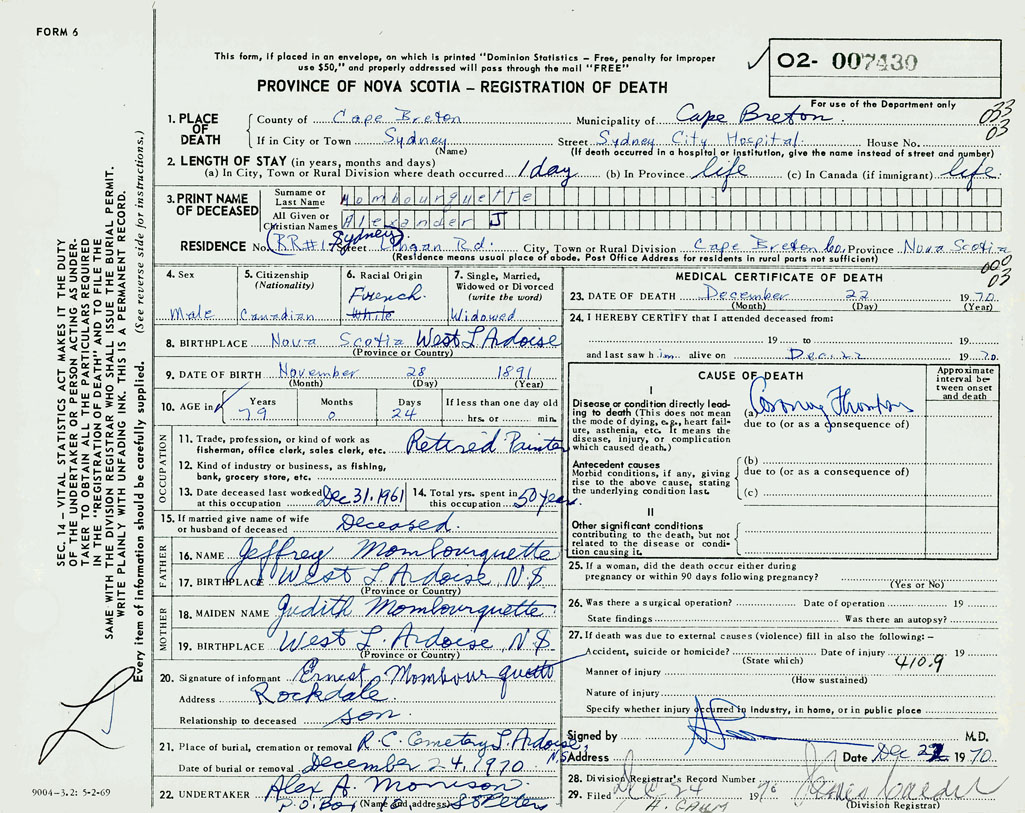 FORM 6
This form, if placed in an envelope, on which is printed "Dominion Statistics – Free, penalty for improper
use $50," and properly addressed will pass through the mail "FREE"
PROVINCE OF NOVA SCOTIA – REGISTRATION OF DEATH
02- 007430
For use of the Department only
03
03
1. PLACE OF DEATH
County of Cape Breton Municipality of Cape Breton.
If in City or Town Sydney Street Sydney City Hospital. House No.
(Name) (If death occurred in a hospital or institution, give the name instead of street and number)
2. LENGTH OF STAY (in years, months and days)
(a) In City, Town or Rural Division where death occurred 1 day (b) In Province life (c) In Canada (if immigrant) life.
3. PRINT NAME OF DECEASED
Surname or Last Name Mombourquette
All Given or Christian Names Alexander J
RESIDENCE No. (RR#1. Sydney) Street Rd. City, Town or Rural Division Cape Breton Co, Province Nova Scotia
(Residence means usual place of abode. Post Office Address for residents in rural parts not sufficient)
000
03
4. Sex Male
5. Citizenship (Nationality) Canadian
6. Racial Origin French. White
7. Single, Married, Widowed or Divorced (write the word) Widowed
8. BIRTHPLACE Nova Scotia West L Ardoise
(Province or Country)
9. DATE OF BIRTH November 28 1891
(Month) (Day) (Year)
10. AGE in Years 79 Months 0 Days 24 If less than one day old hrs. or min.
OCCUPATION
11. Trade, profession, or kind of work as fisherman, office clerk, sales clerk, etc. Retired Painter
12. Kind of industry or business, as fishing, bank, grocery store, etc.
13. Date deceased last worked at this occupation Dec 31. 1961 14. Total yrs. spent in this occupation 50 years.
15. If married give name of wife or husband of deceased Deceased.
FATHER
16. NAME Jeffrey Mombourquette
17. BIRTHPLACE West L Ardoise, N.S
(Province or Country)
MOTHER
18. MAIDEN NAME Judith Mombourquette
19. BIRTHPLACE West L. Ardoise, N.S
(Province or Country)
20. Signature of informant Ernest Mombourquette
Address Rockdale.
Relationship to deceased son.
21. Place of burial, cremation or removal R.C. Cemetery L. Ardoise, N.S
Date of burial or removal December 24, 1970
22. UNDERTAKER Alex A. Morrison
(Name and address) P.O. Box St Peters
MEDICAL CERTIFICATE OF DEATH
23. DATE OF DEATH December 22 1970
(Month) (Day) (Year)
24. I HEREBY CERTIFY that I attended deceased from:
19 to 19
and last saw him alive on Dec. 22 1970.
CAUSE OF DEATH
Approximate interval between onset and death
I
Disease or condition directly leading to death (This does not mean the mode of dying, e.g., heart failure, asthenia, etc. It means the disease, injury, or complication which caused death.)
(a) Coronary Thrombosis
due to (or as a consequence of)
Antecedent causes
Morbid conditions, if any, giving rise to the above cause, stating the underlying condition last.
(b)
due to (or as a consequence of)
(c)
II
Other significant conditions contributing to the death, but not related to the disease or condition causing it.
25. If a woman, did the death occur either during pregnancy or within 90 days following pregnancy?
(Yes or No)
26. Was there a surgical operation? Date of operation 19
State findings Was there an autopsy?
27. If death was due to external causes (violence) fill in also the following: –
Accident, suicide or homicide? Date of injury 19
(State which) 410.9
Manner of injury
(How sustained)
Nature of injury
Specify whether injury occurred in industry, in home, or in public place
Signed by M.D.
Address Date Dec 22 1970
28. Division Registrar's Record Number
29. Filed Dec 24 1970
(Division Registrar)
SEC. 14 – VITAL STATISTICS ACT MAKES IT THE DUTY
OF THE UNDERTAKER OR PERSON ACTING AS UNDERTAKER
TO OBTAIN ALL THE PARTICULARS REQUIRED
IN THE "REGISTRATION OF DEATH" AND TO FILE THE
SAME WITH THE DIVISION REGISTRAR WHO SHALL ISSUE THE BURIAL PERMIT.
WRITE PLAINLY WITH UNFADING INK. THIS IS A PERMANENT RECORD.
Every item of information should be carefully supplied. (See reverse side for instructions.)
9004-3.2: 5-2-69